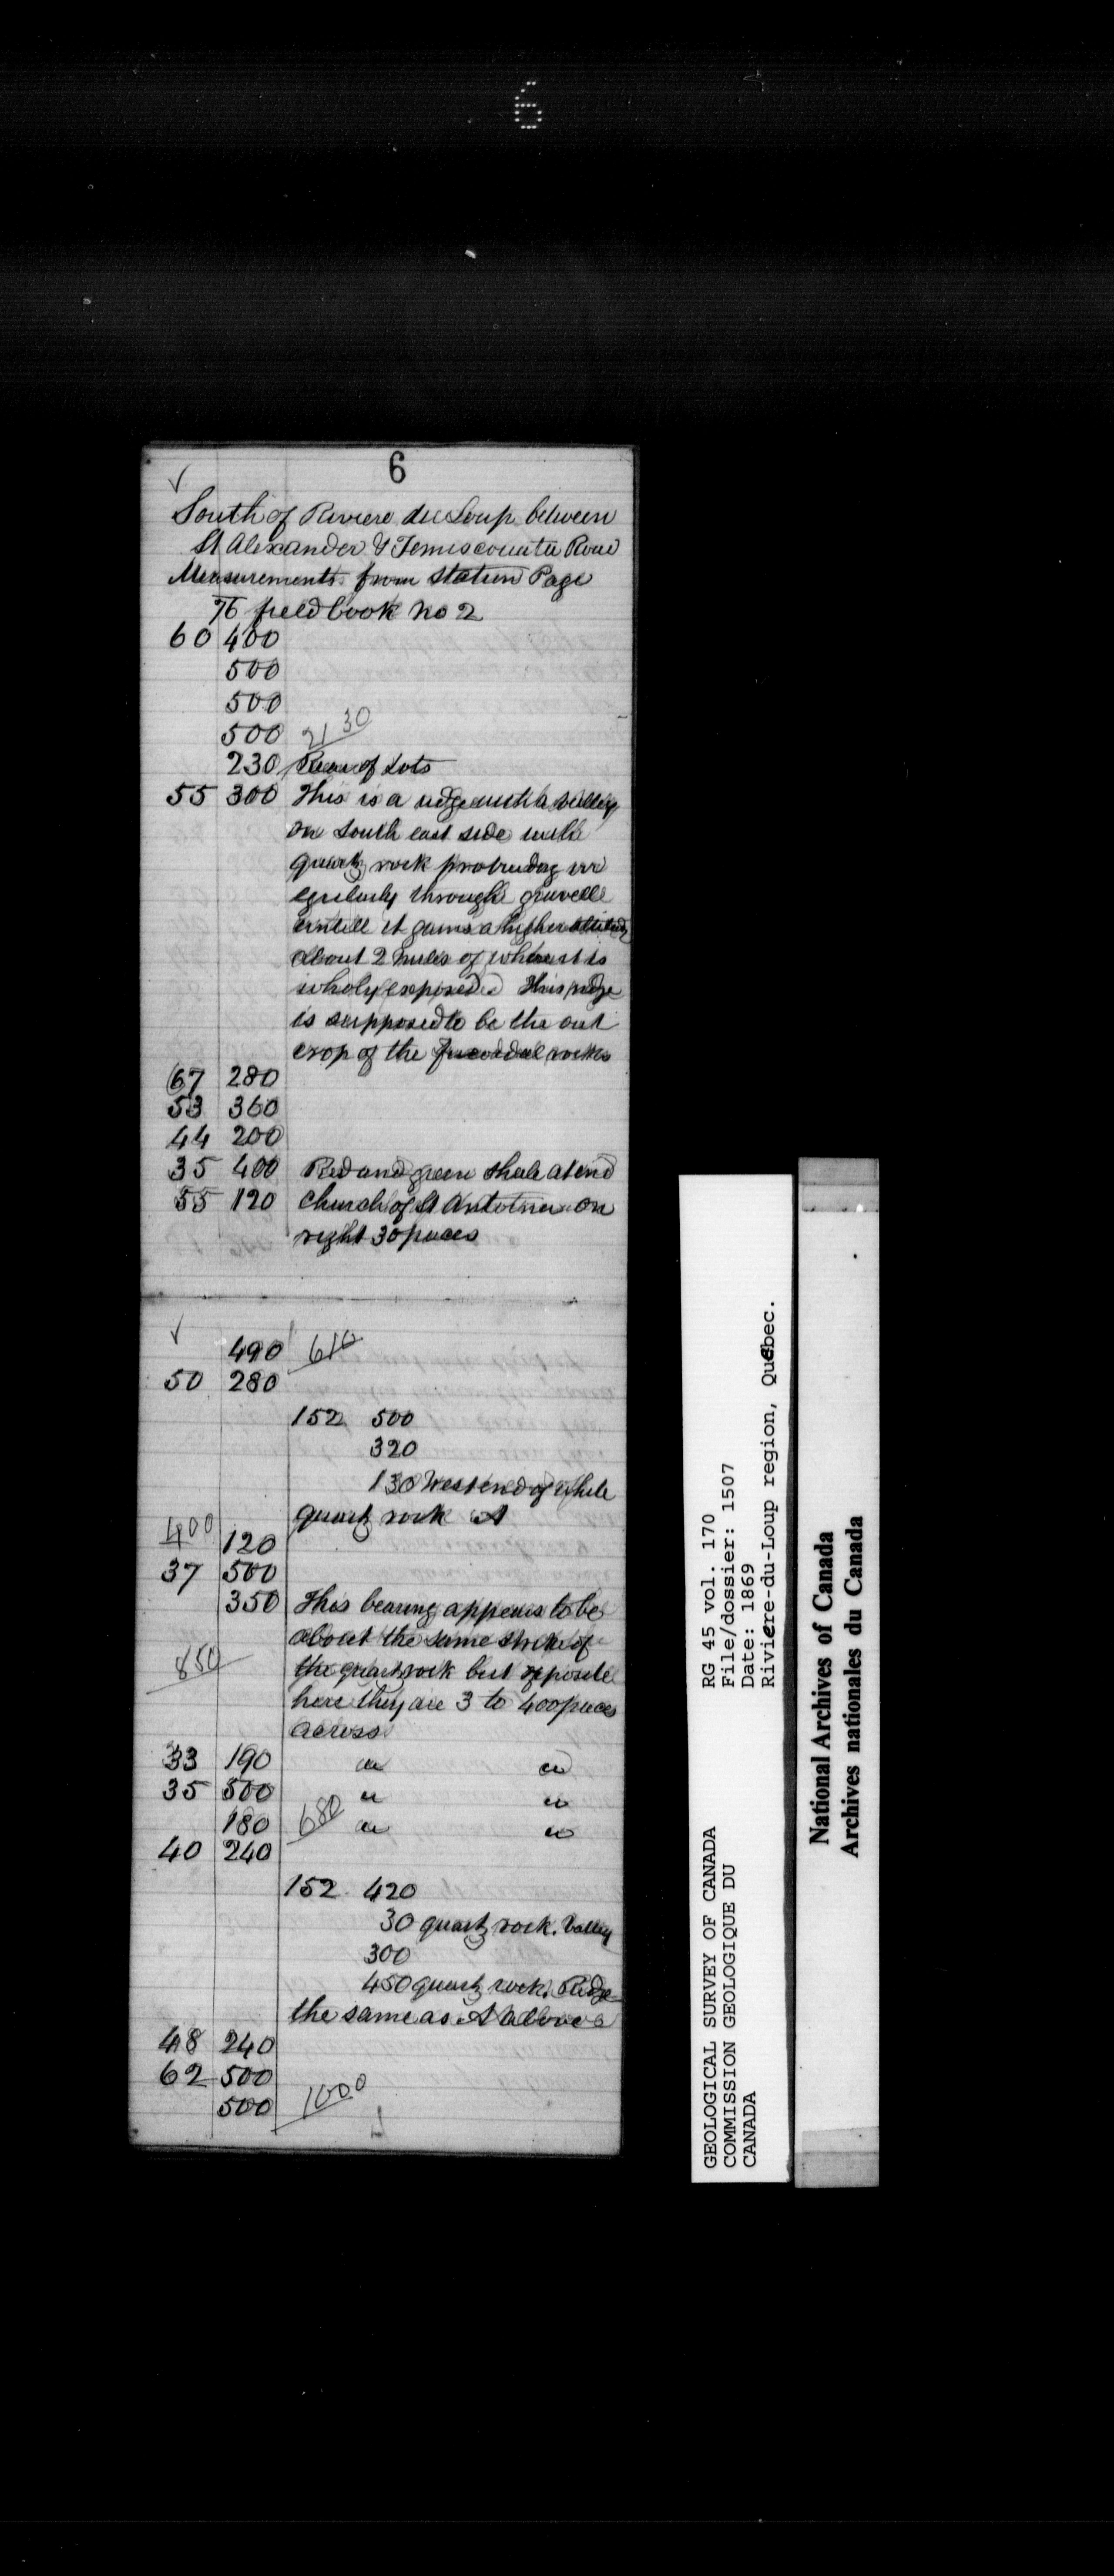 6
6
South of Riviere du Loup between
St Alexander & Temiscouata Road
Measurements from station Page
76 field book no 2
60 400
500
500
500 2130
230 Rear of Lots
55 300 This is a ridge with a valley
on south east side with
quartz rock protruding irr
egularly through gravelle
untill it gains a higher altitude
about 2 miles of where it is
wholy exposed. This ridge
is supposed to be the out
crop of the fucoidal rocks
67 280
53 360
44 200
35 400 Red and green shale at end
55 120 Church of St Antoine on
right 30 paces
490 610
50 280
152 500
320
130 West end of while
quartz rock A
400 120
37 500
350 This bearing appears to be
about the same strike of
850 the quartz rock but opposite
here they are 3 to 400 paces
across
33 190 " "
35 500 " "
180 680 " "
40 240
152 420
30 quartz rock. Valley
300
450 quartz rock. Ridge
the same as A above
48 240
62 500
500 1000
GEOLOGICAL SURVEY OF CANADA
COMMISSION GEOLOGIQUE DU
CANADA
RG 45 vol. 170
File/dossier: 1507
Date: 1869
Rivière-du-Loup region, Québec.
National Archives of Canada
Archives nationales du Canada